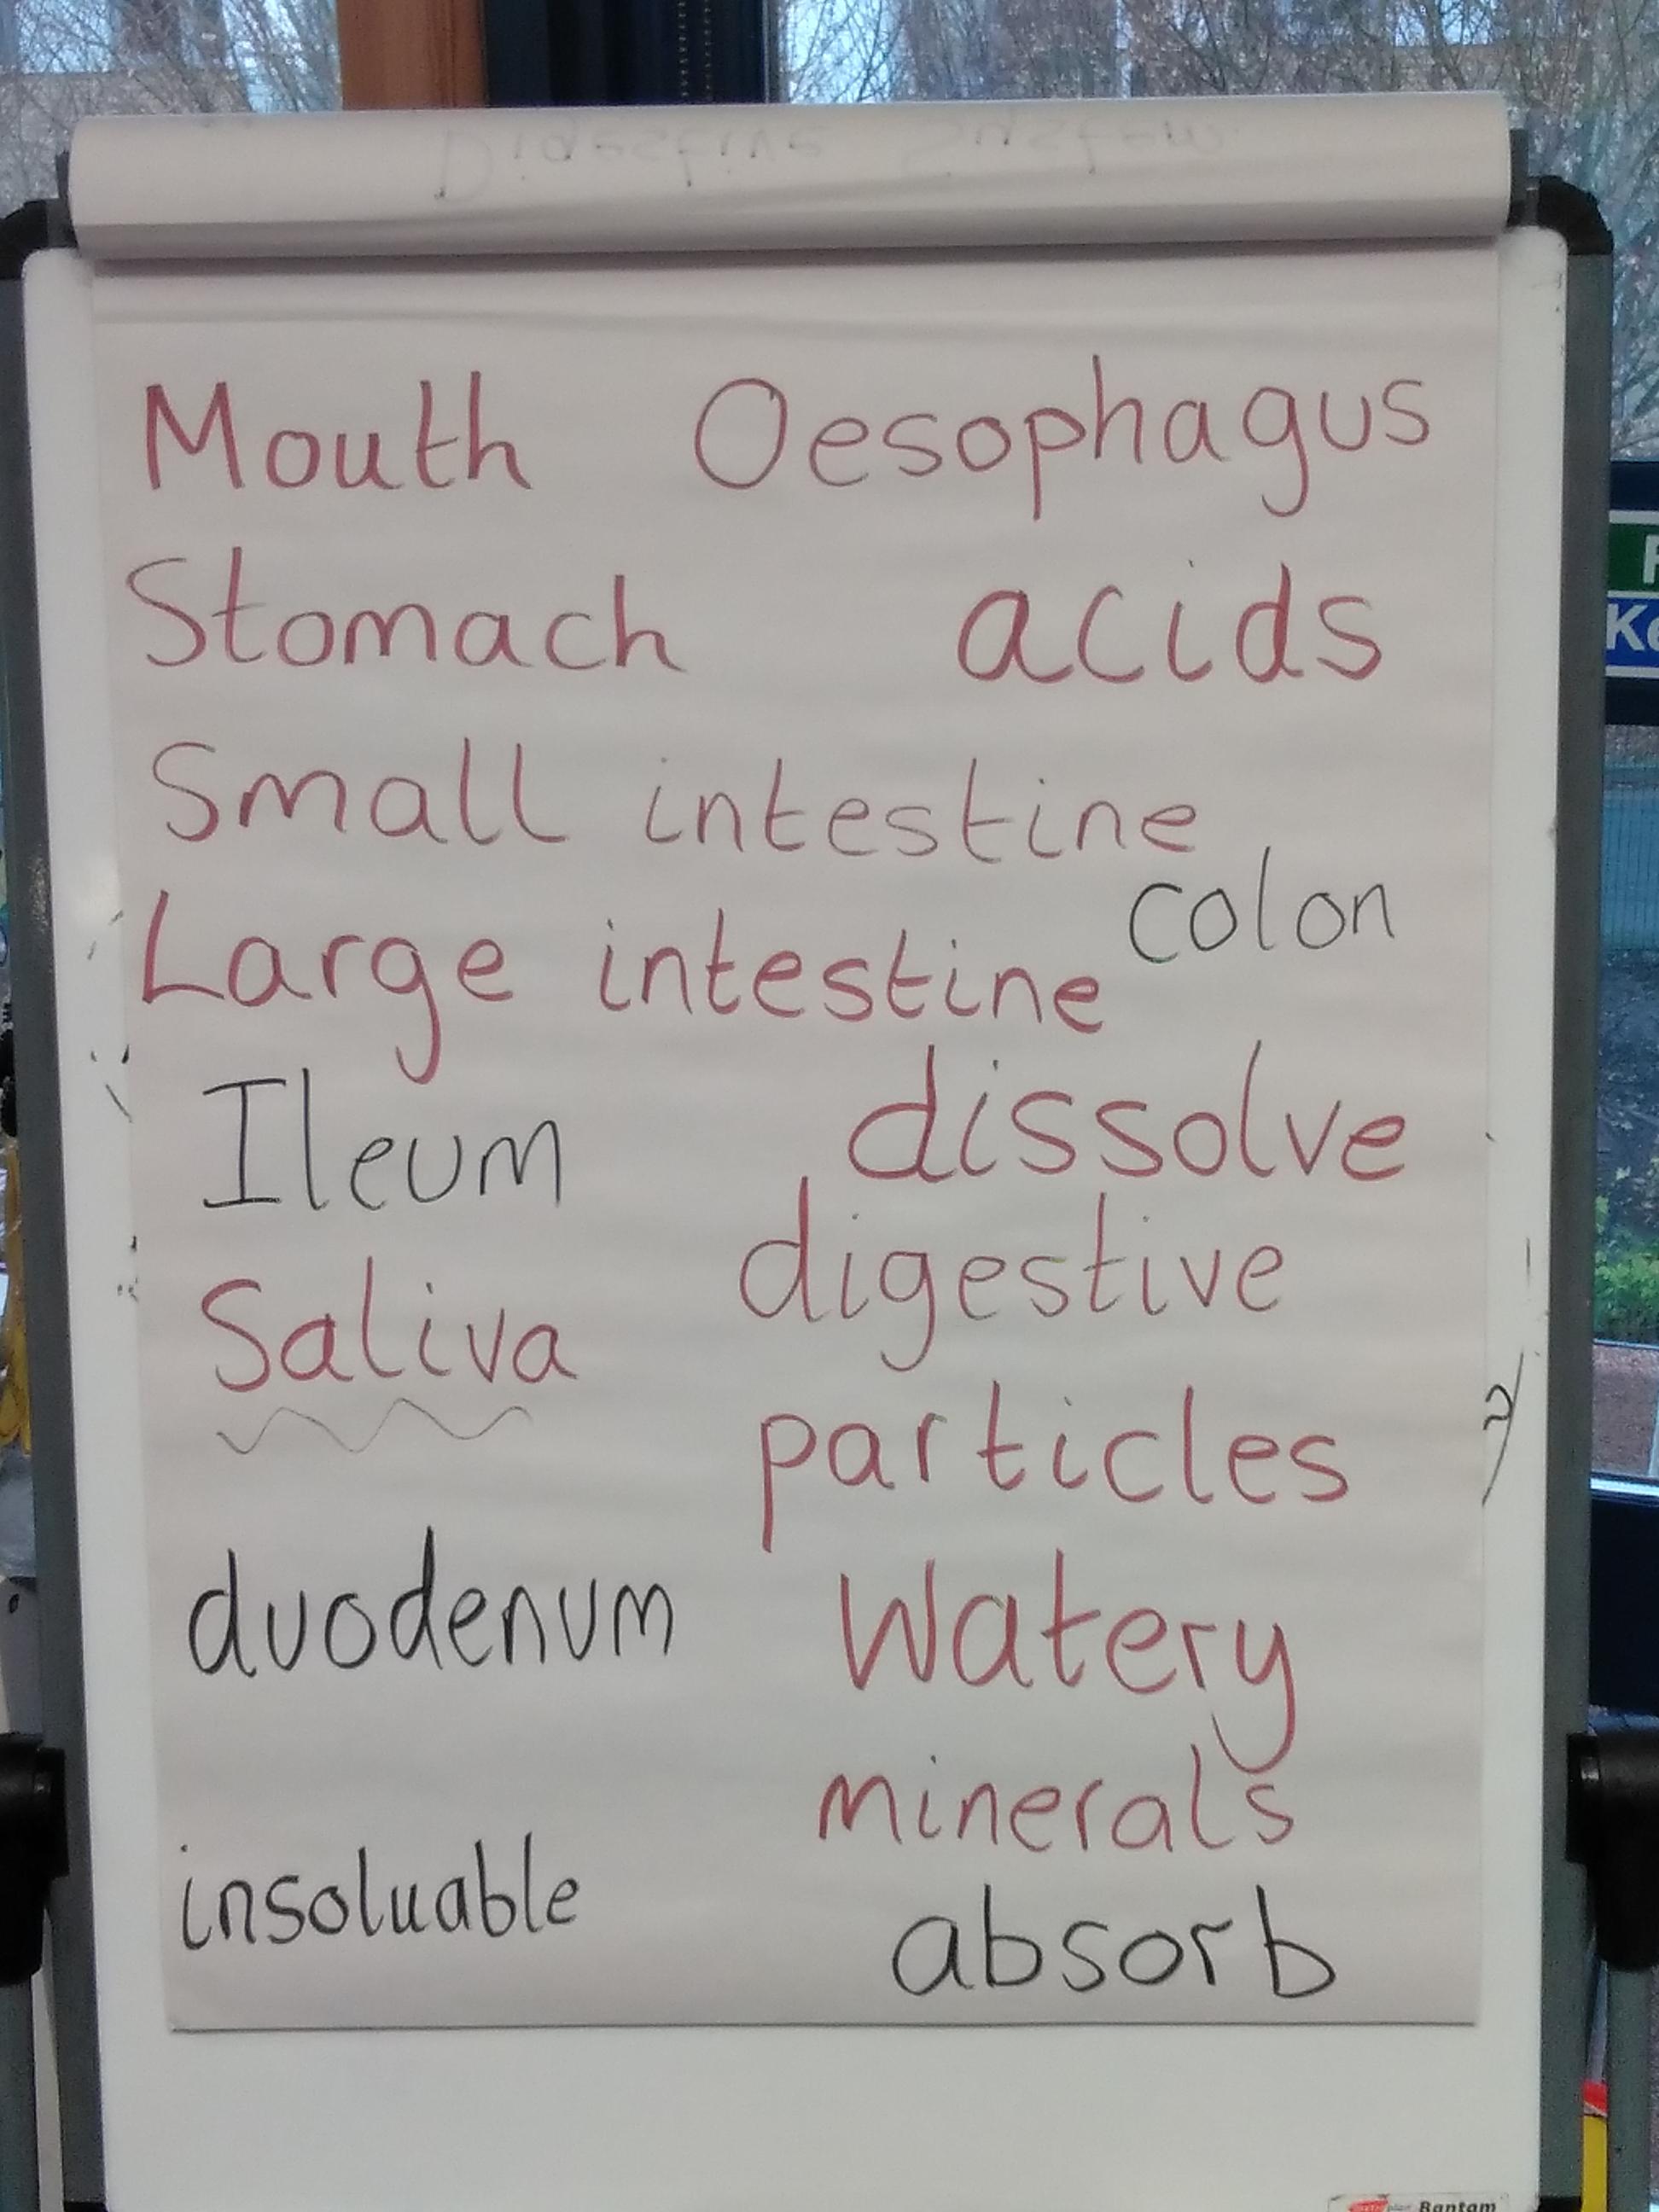 Digestive System
Mouth Oesophagus
Stomach acids
Small intestine
colon
Large intestine
Ileum dissolve
digestive
Saliva
particles
duodenum Watery
minerals
insoluable
absorb
Bantam